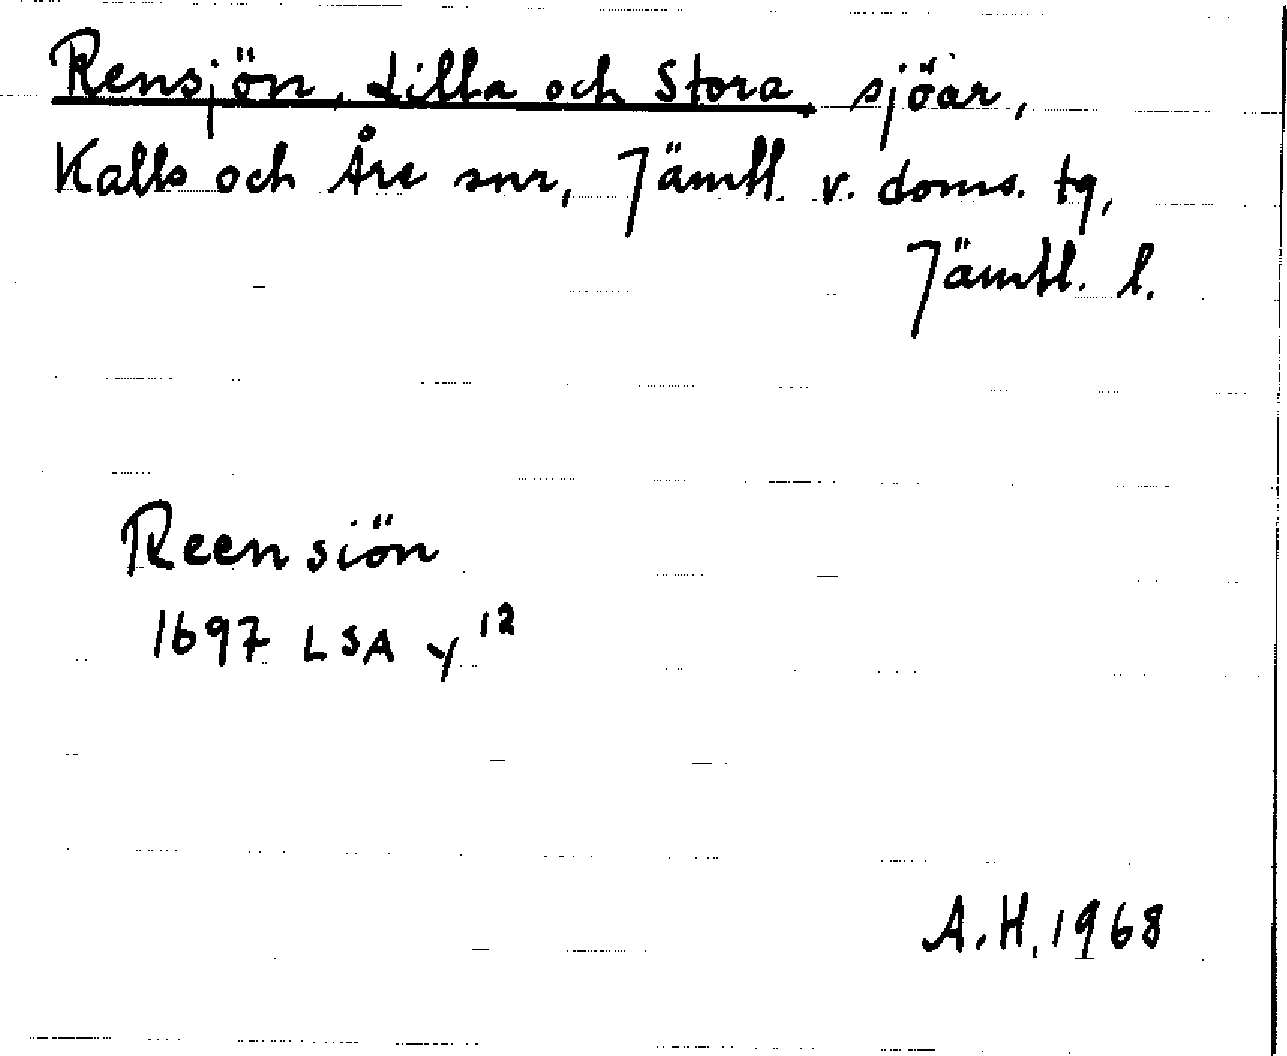 Rensjön, Lilla och Stora, sjöar,
Kalls och Åre snr, Jämtl. v. doms. tg,
Jämtl. l.
Reensiön
1697 LSA Y 12
A.H. 1968